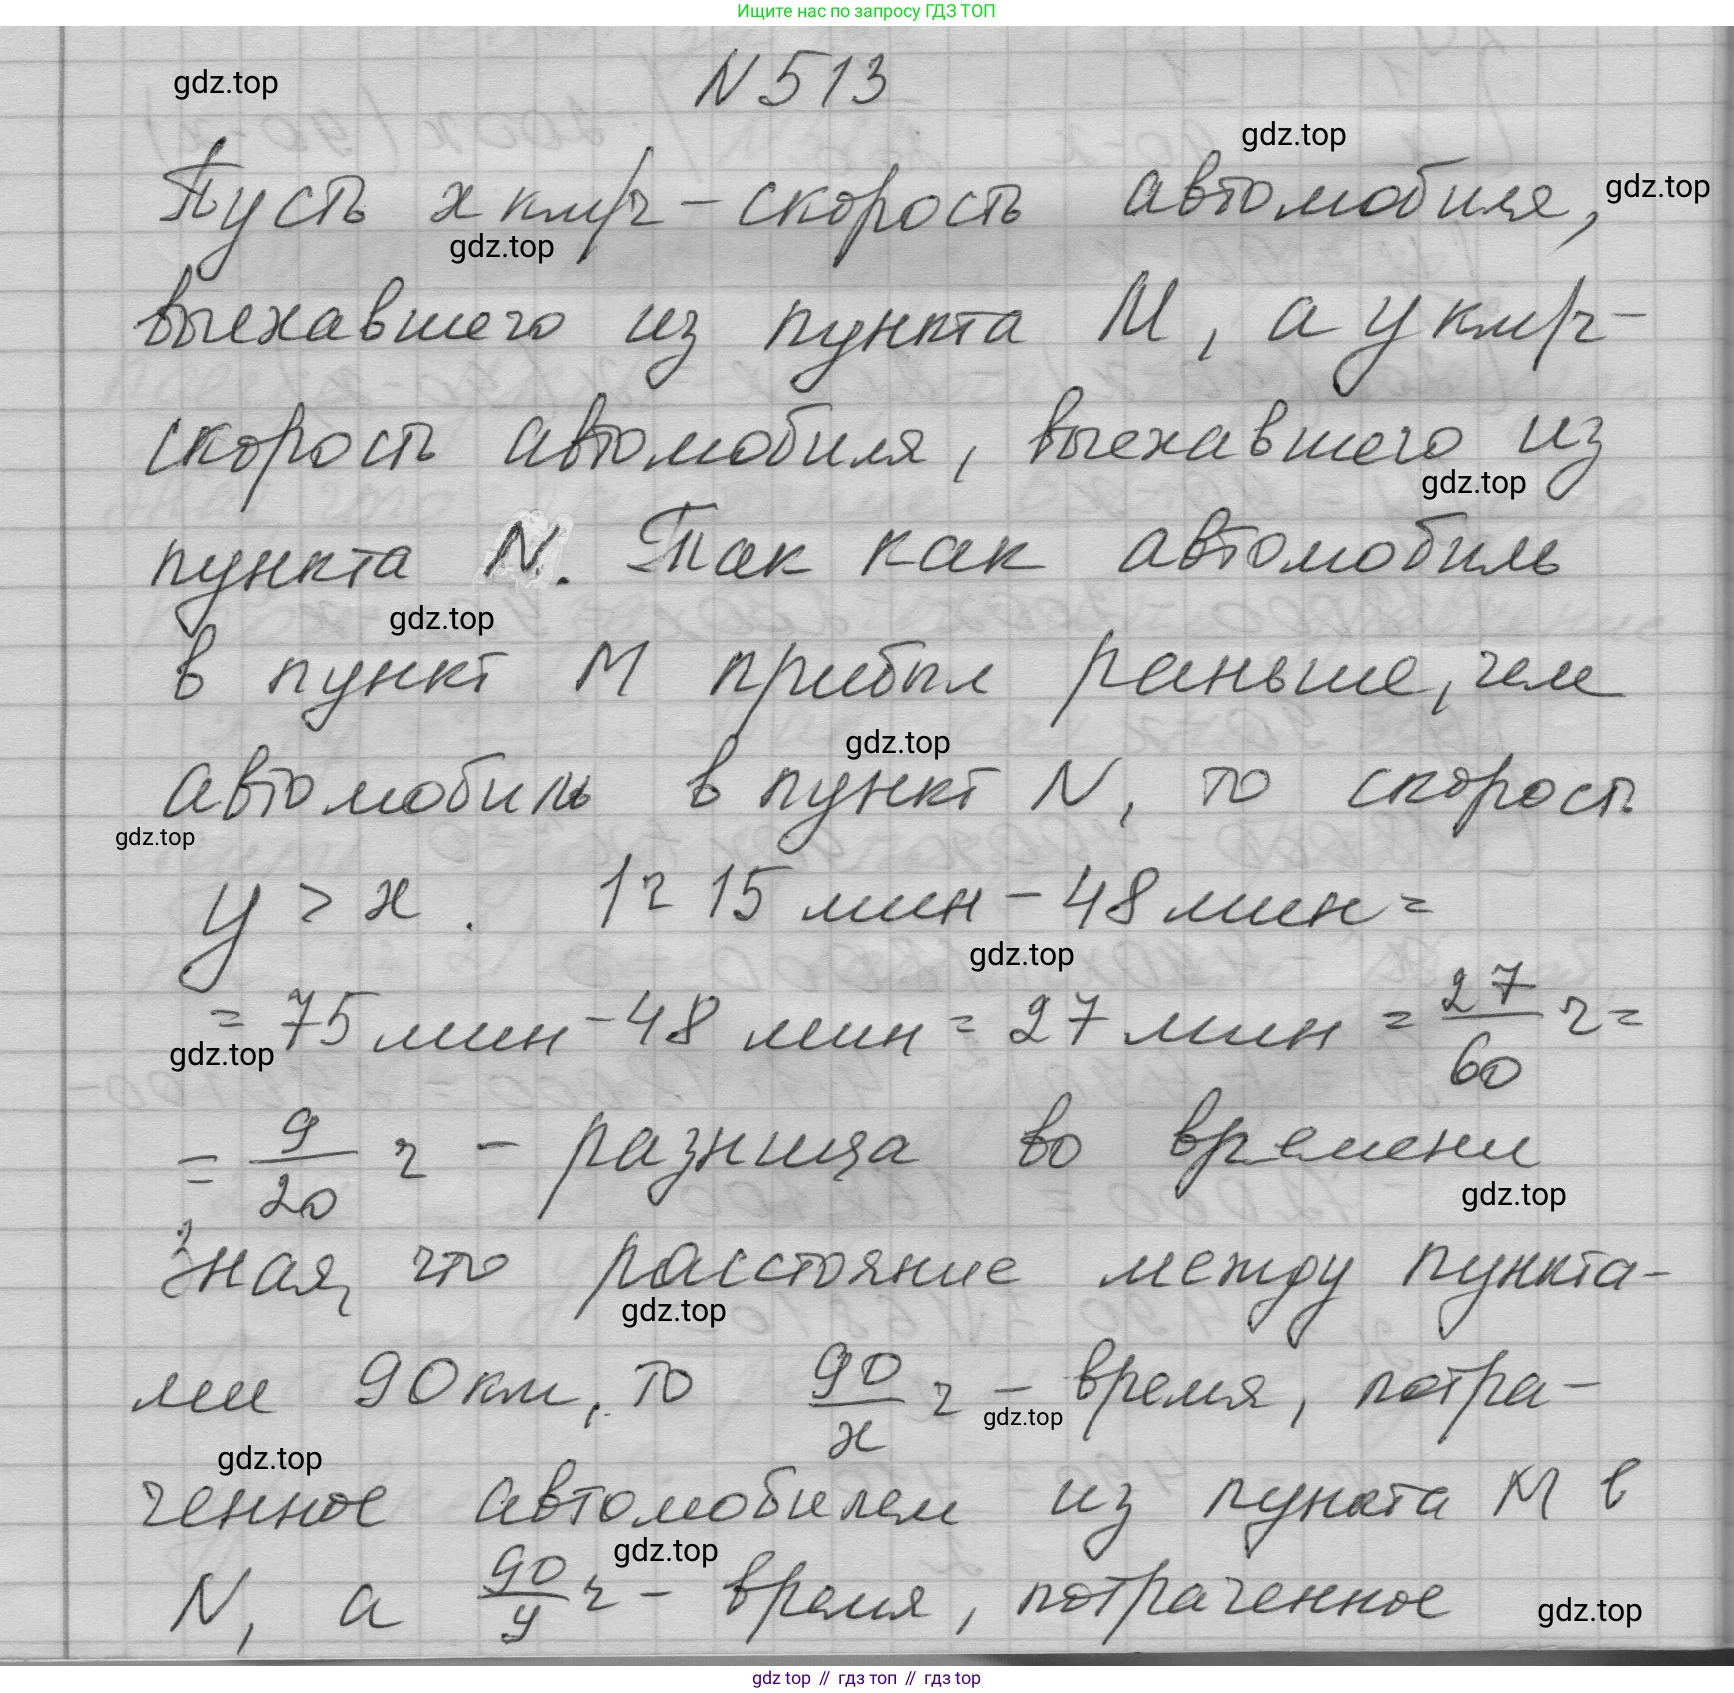 Ищите нас по запросу ГДЗ ТОП
N 513
gdz.top
gdz.top
Пусть x км/ч – скорость автомобиля,
gdz.top
gdz.top
выехавшего из пункта M, а y км/ч –
скорость автомобиля, выехавшего из
gdz.top
пункта N. Так как автомобиль
gdz.top
в пункт M прибыл раньше, чем
gdz.top
автомобиль в пункт N, то скорость
gdz.top
y > x. 1 ч 15 мин – 48 мин =
gdz.top
= 75 мин – 48 мин = 27 мин = 27/60 ч =
gdz.top
= 9/20 ч – разница во времени
gdz.top
Зная, что расстояние между пункта-
gdz.top
ми 90 км, то 90/x ч – время, потра-
gdz.top
gdz.top
ченное автомобилем из пункта M в
gdz.top
N, а 90/y ч – время, потраченное
gdz.top
gdz top // гдз топ // гдз top